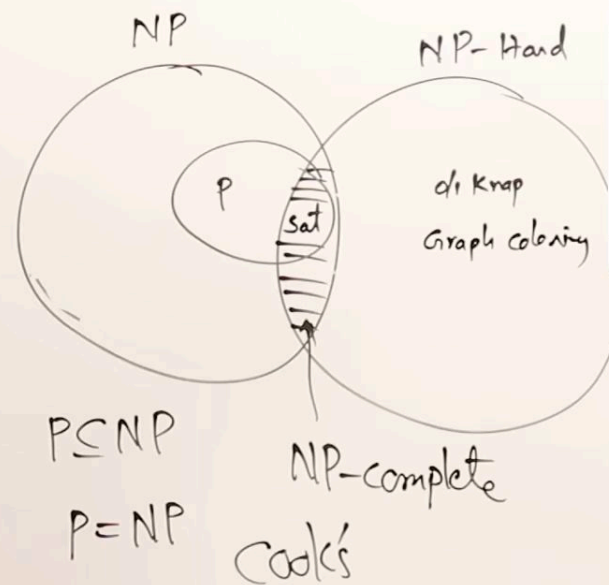 NP
NP-Hard
P
Sat
0/1 Knap
Graph coloring
P⊆NP
NP-complete
P=NP
Cook's